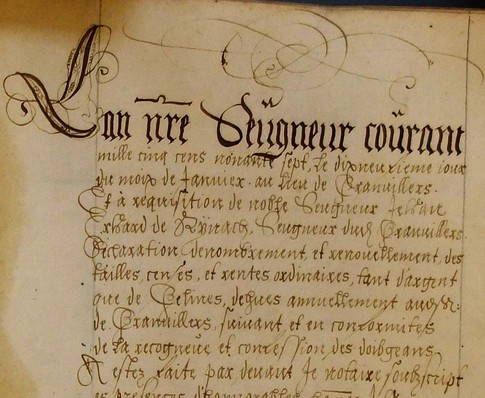 Lan nr̃e Seugneur courant
mille cinq cens nonante sept, le dixneufieme jour
du moix de Janvier. au lieu de Granvillers.
Et à requisition de noble Seugneur Jehan
Erhard de Rÿnach, Seugneur dud. Granvillers.
Declaration denombrement, et renouellement, des
tailles, censes, et rentes ordinaires, tant d'argent
que de Gelines, dehues annuellement aud. Sr.
de Granvillers, suivant, et en conformites
de la recogneue et confession des doibgeans
A estez faite par devant Je notaire soubscript
es presences d'honnorables